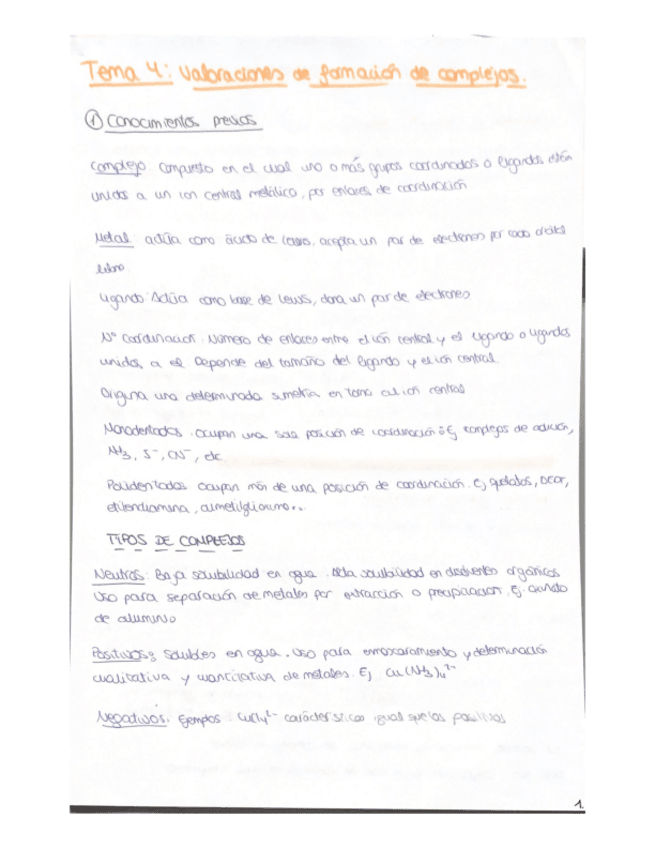 Tema 4: Valoraciones de formación de complejos.
① Conocimientos previos
Complejo compuesto en el cual uno o más grupos coordinados o ligandos están
unidos a un ion central metálico, por enlaces de coordinación
Metal actúa como ácido de Lewis, acepta un par de electrones por cada orbital
libre
Ligando: Actúa como base de Lewis, dona un par de electrones
Nº coordinación. Número de enlaces entre el ión central y el ligando o ligandos
unidos a él. Depende del tamaño del ligando y el ión central.
Origina una determinada simetría en torno al ión central
Monodentados. Ocupan una sola posición de coordinación Ej complejos de adición,
NH3, S⁻, CN⁻, etc
Polidentados Ocupan más de una posición de coordinación. Ej quelatos,
etilendiamina, dimetilglioxima...
TIPOS DE COMPLEJOS
Neutros: Baja solubilidad en agua. Alta solubilidad en disolventes orgánicos
Uso para separación de metales por extracción o precipitación. Ej.
de aluminio
Positivos: Solubles en agua. Uso para enmascaramiento y determinación
cualitativa y cuantitativa de metales. Ej Cu(NH3)4
Negativos. Ejemplos características igual que los positivos
1.